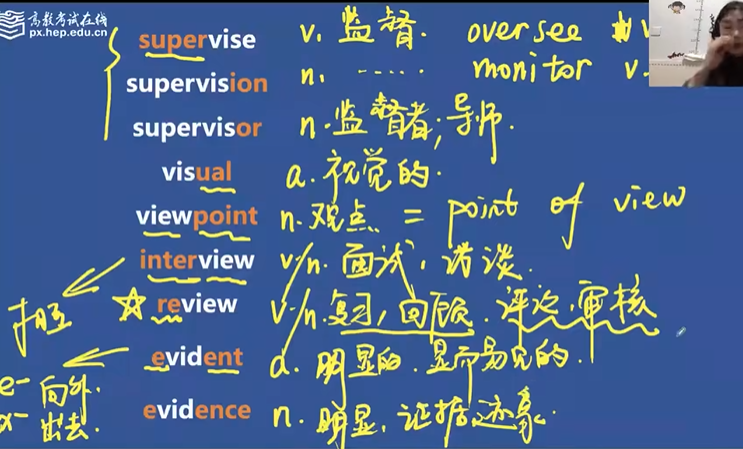 高教考试在线
px.hep.edu.cn
supervise v. 监督. oversee v
supervision n. ..... monitor v.
supervisor n. 监督者; 导师.
visual a. 视觉的.
viewpoint n. 观点 = point of view
interview v/n. 面试, 访谈.
☆ review v/n. 复习, 回顾. 评论. 审核
evident a. 明显的. 显而易见的.
e- 向外.
出去.
evidence n. 明显, 证据, 迹象.